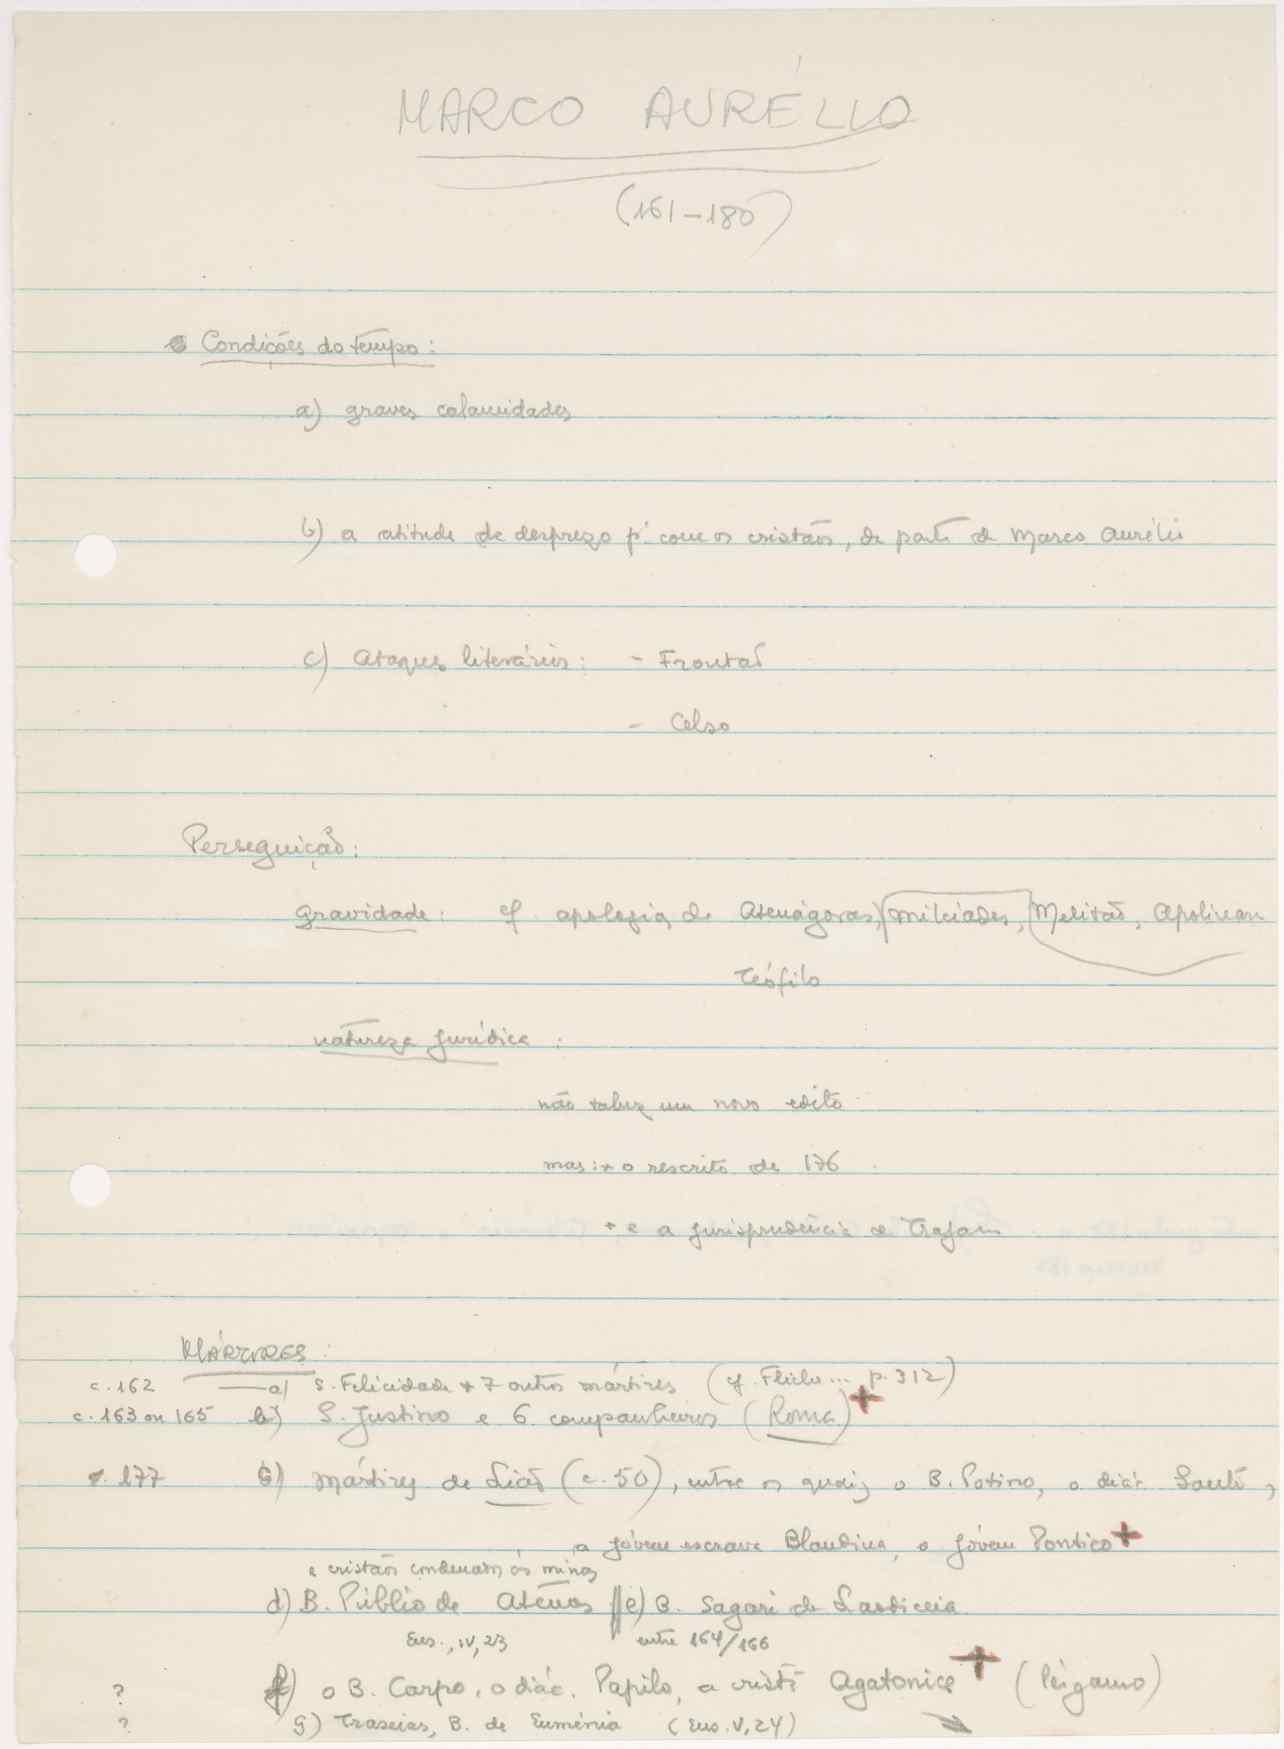 MARCO AURÉLIO
(161-180)
Condições do tempo:
a) graves calamidades
b) a atitude de desprezo p' com os cristãos, de parte de Marco Aurélio
c) Ataques literários: - Frontão
- Celso
Perseguição:
gravidade: cf. apologia de Atenágoras, Milciades, Melitão, Apolinar
Teófilo
natureza jurídica :
não talvez um novo edito
mas: + o rescrito de 176
+ e a jurisprudência de Trajano
MÁRTIRES :
c. 162 a) S. Felicidade + 7 outros mártires (cf. Fliche... p. 312)
c. 163 ou 165 b) S. Justino e 6 companheiros (Roma) +
c. 177 c) Mártires de Lião (c. 50), entre os quais o B. Potino, o diác. Santo,
a jóvem escrava Blandina, o jóvem Pontico +
e cristãos condenados às minas
d) B. Públio de Atenas || e) B. Sagari de Laodiceia
Eus., IV, 23 entre 164/166
? f) o B. Carpo, o diác. Papilo, a cristã Agatonice + (Pérgamo)
? g) Traseias, B. de Euménia (Eus. V, 24)